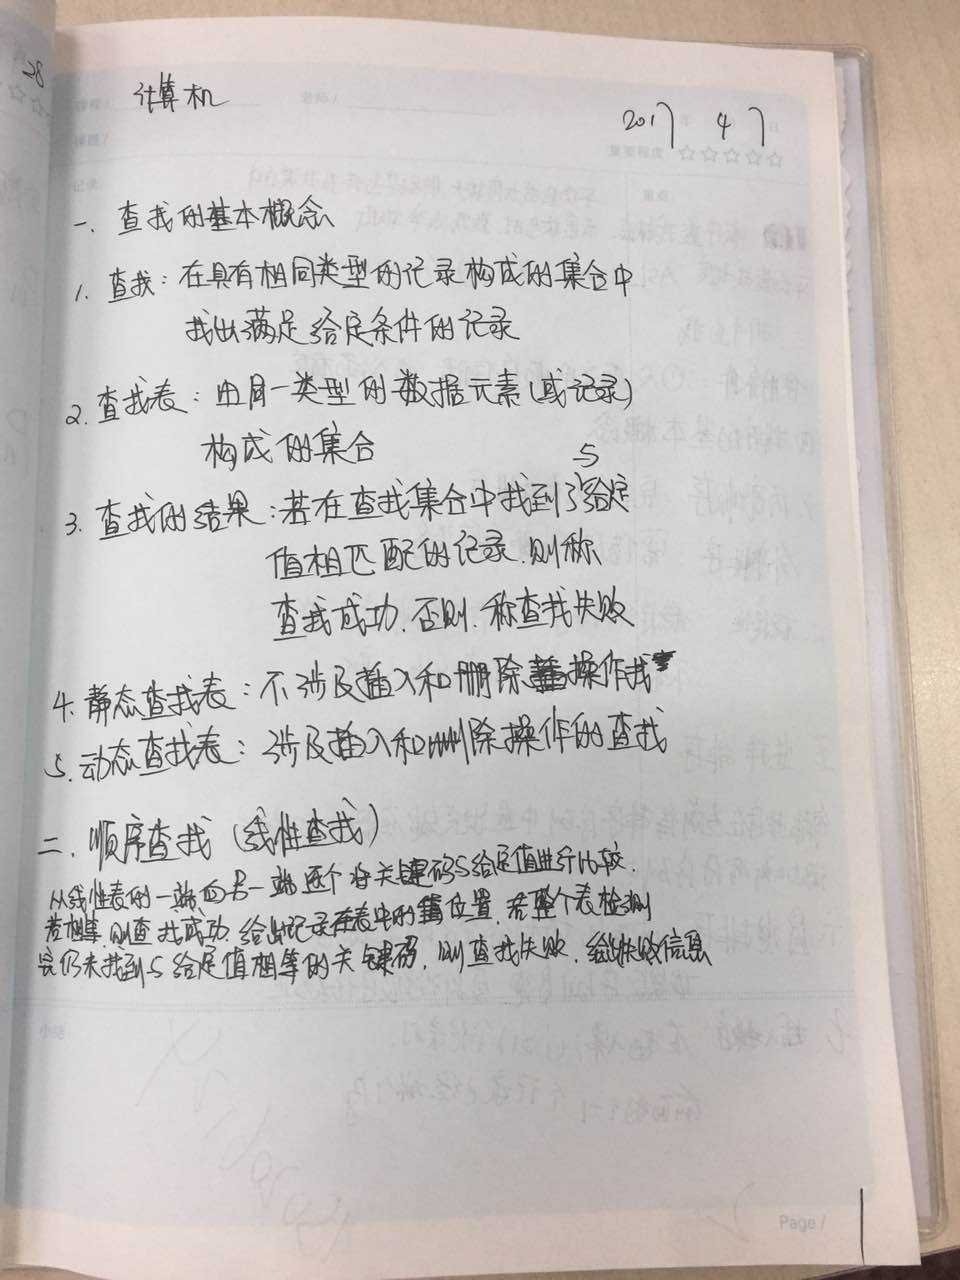 28
计算机
2017 年 4 7 日
重要程度 ☆☆☆☆☆
一、查找的基本概念
1. 查找：在具有相同类型的记录构成的集合中
找出满足给定条件的记录
2. 查找表：由同一类型的数据元素(或记录)
构成的集合
3. 查找的结果：若在查找集合中找到了与给定
值相匹配的记录.则称
查找成功.否则.称查找失败
4. 静态查找表：不涉及插入和删除操作找
5. 动态查找表：涉及插入和删除操作的查找
二、顺序查找（线性查找）
从线性表的一端向另一端逐个将关键码与给定值进行比较.
若相等.则查找成功.给出记录在表中的位置.若整个表检测
完仍未找到与给定值相等的关键码.则查找失败.给出失败信息
小结
Page /